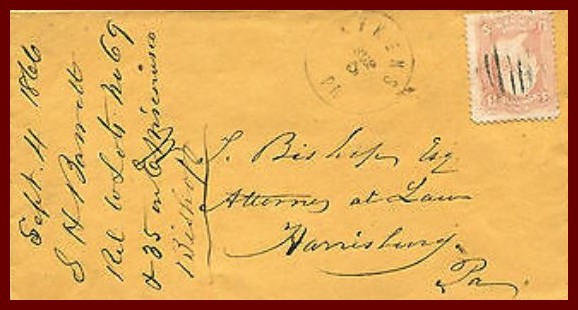 Sept. 4 1866
S H Barrett
Rel to Lots No 69
& 35 on
Bishop
J. Bishop Esq
Attorney at Law
Harrisburg
Pa.